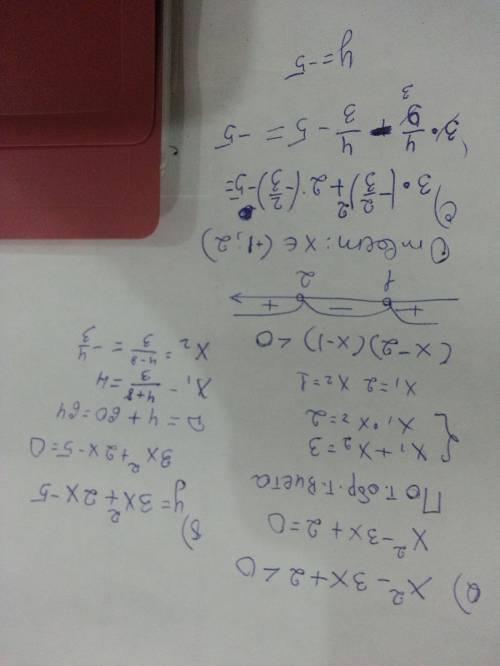 а) x² - 3x + 2 < 0
x² - 3x + 2 = 0
По т. обр. т. Виета
{ x₁ + x₂ = 3
x₁ · x₂ = 2
x₁ = 2 x₂ = 1
(x - 2)(x - 1) < 0
+ − +
1 2
Ответ: x ∈ (+1; 2)
б) y = 3x² + 2x - 5
3x² + 2x - 5 = 0
D = 4 + 60 = 64
x₁ - (4+8)/3 = 4
x₂ = (4-8)/3 = -4/3
с) 3 · (-2/3)² + 2 · (-2/3) - 5 =
3 · 4/9 + 4/3 - 5 = -5
3
y = -5